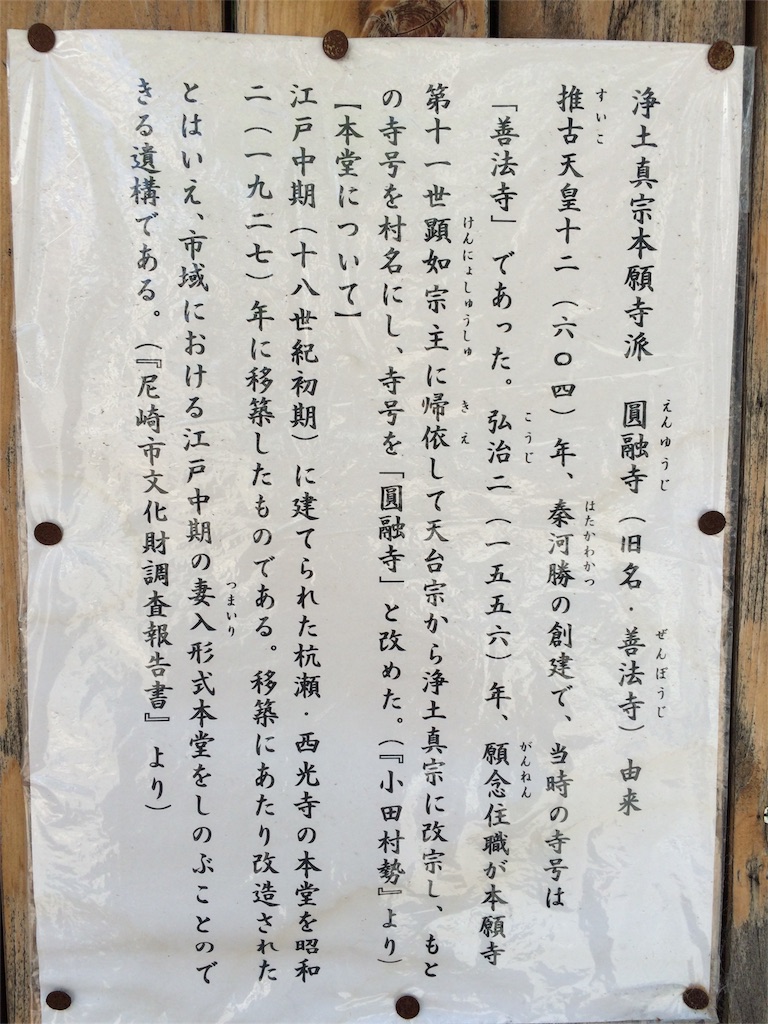 浄土真宗本願寺派 圓融寺（旧名・善法寺）由来
えんゆうじ ぜんぽうじ
推古天皇十二（六〇四）年、秦河勝の創建で、当時の寺号は
すいこ はたかわかつ
「善法寺」であった。弘治二（一五五六）年、願念住職が本願寺
こうじ がんねん
第十一世顕如宗主に帰依して天台宗から浄土真宗に改宗し、もと
けんにょしゅうしゅ きえ
の寺号を村名にし、寺号を「圓融寺」と改めた。（『小田村勢』より）
【本堂について】
江戸中期（十八世紀初期）に建てられた杭瀬・西光寺の本堂を昭和
二（一九二七）年に移築したものである。移築にあたり改造された
とはいえ、市域における江戸中期の妻入形式本堂をしのぶことので
つまいり
きる遺構である。（『尼崎市文化財調査報告書』より）